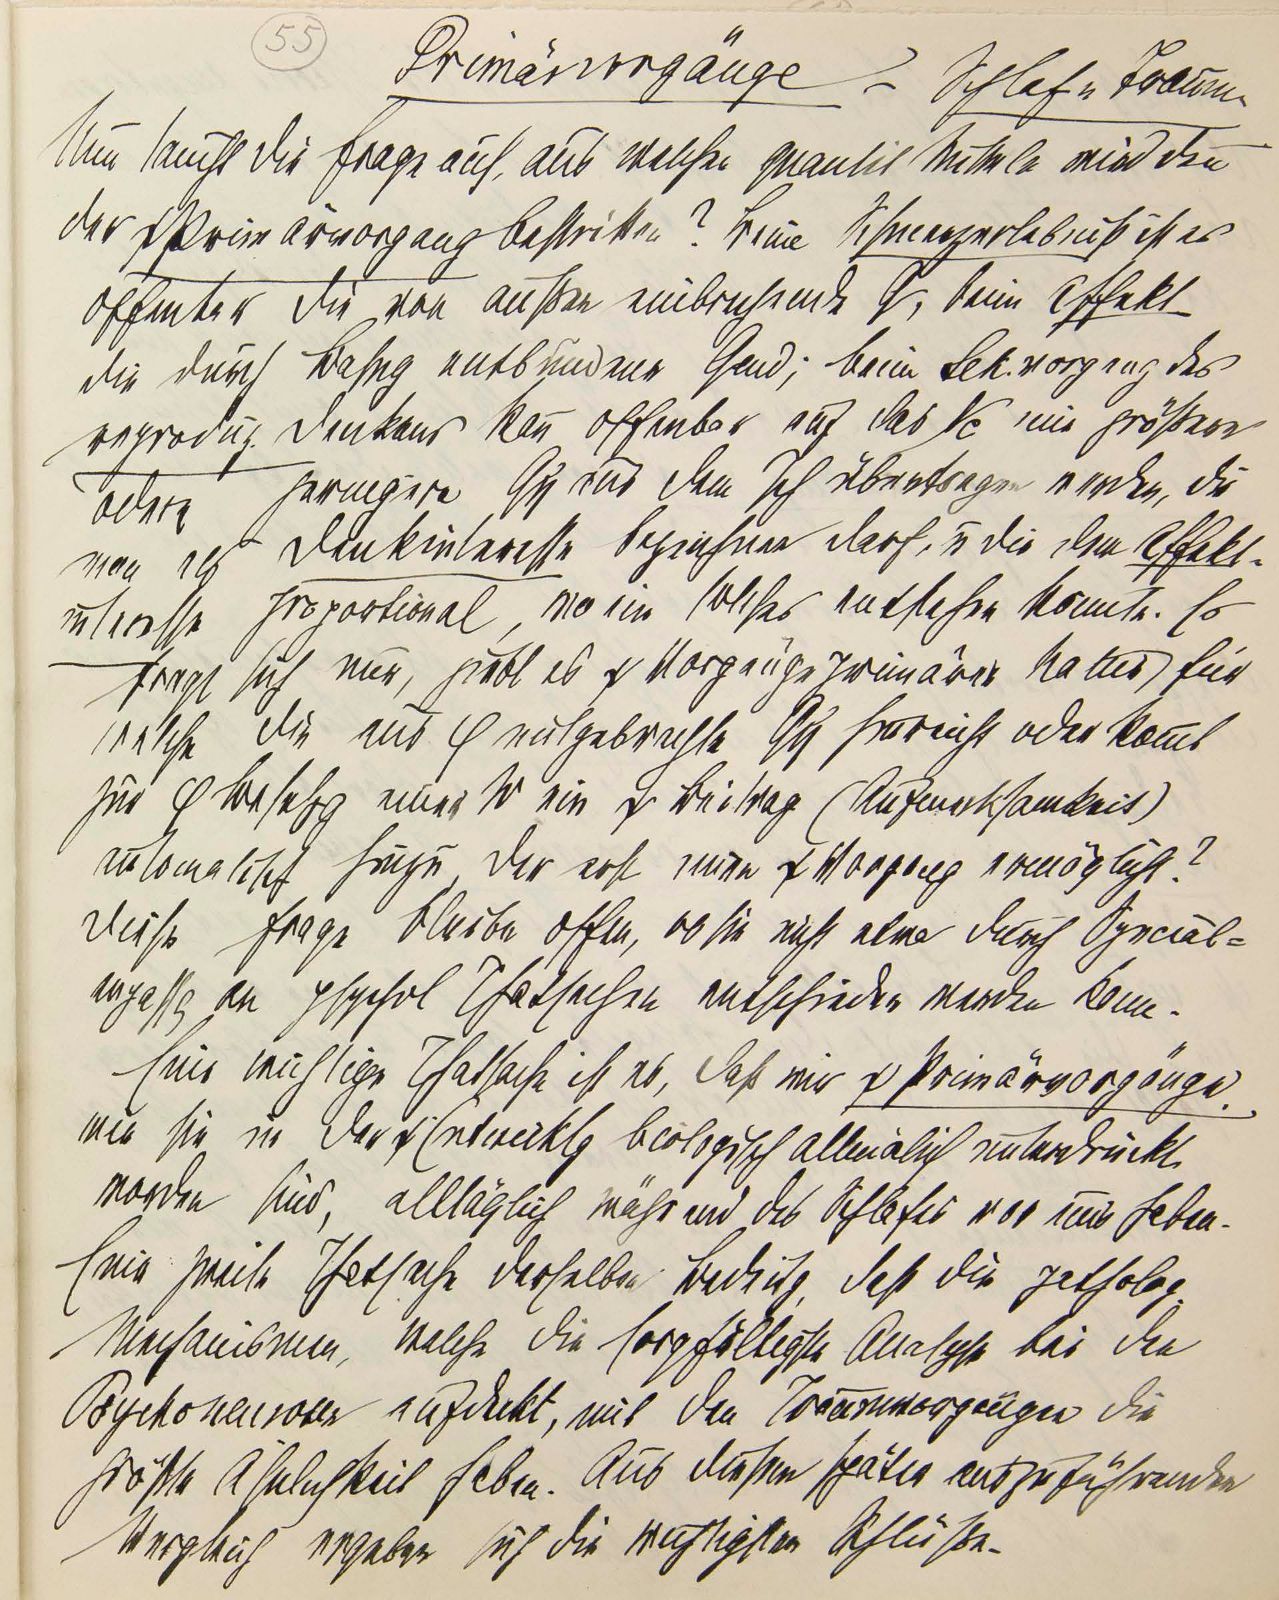 55
Primärvorgänge – Schlaf u Traum
Nun taucht die Frage auf, aus welchen quantit Mitteln wird denn
der ψ Primärvorgang bestritten? Beim Schmerzerlebniß ist es
offenbar die von außen einbrechende Q, beim Affekt
die durch Besetzg entbundene Quant; beim Sek.vorgang des
reproduz. Denkens kann offenbar auf das Nc eine größere
oder geringere Qή aus dem Ich übertragen werden, die
man als Denkinteresse bezeichnen darf, u die dem Affekt-
interesse proportional, wo ein solches entstehen konnte. Es
fragt sich nun, giebt es ψ Vorgänge primärer Natur, für
welche die aus φ aufgebrachte Qή hinreicht oder kommt
zur φ Besetzg einer W ein ψ Beitrag (Aufmerksamkeit)
automatisch hinzu, der erst einen ψ Vorgang ermöglicht?
Diese Frage bleibe offen, ob sie nicht etwa durch Special-
anpassg an psychol Thatsachen entschieden werden kann.
Eine wichtige Thatsache ist es, daß wir ψ Primärvorgänge,
wie sie in der ψ Entwicklg biologisch allmälich unterdrückt
worden sind, alltäglich während des Schlafes vor uns haben.
Eine zweite Thatsache derselben Bedeutg, daß die patholog.
Mechanismen, welche die sorgfältigste Analyse bei den
Psychoneurosen aufdeckt, mit den Traumvorgängen die
größte Ähnlichkeit haben. Aus diesem später auszuführenden
Vergleich ergeben sich die wichtigsten Schlüße.